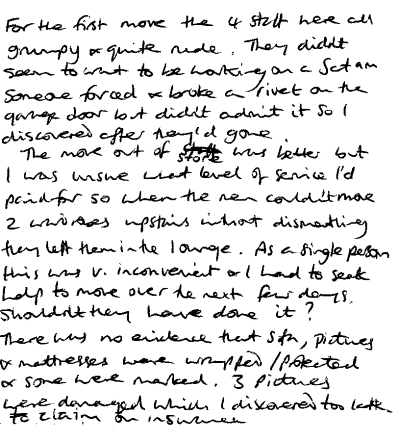 For the first move the 4 staff were all
grumpy & quite rude. They didn't
seem to want to be working on a Sat am
Someone forced & broke a rivet on the
garage door but didn't admit it so I
discovered after they'd gone.
The move out of store was better but
I was unsure what level of service I'd
paid for so when the men couldn't move
2 wardrobes upstairs without dismantling
they left them in the lounge. As a single person
this was v. inconvenient & I had to seek
help to move over the next few days.
Shouldn't they have done it?
There was no evidence that sofa, pictures
& mattresses were wrapped/protected
& some were marked. 3 pictures
were damaged which I discovered too late
to claim on insurance